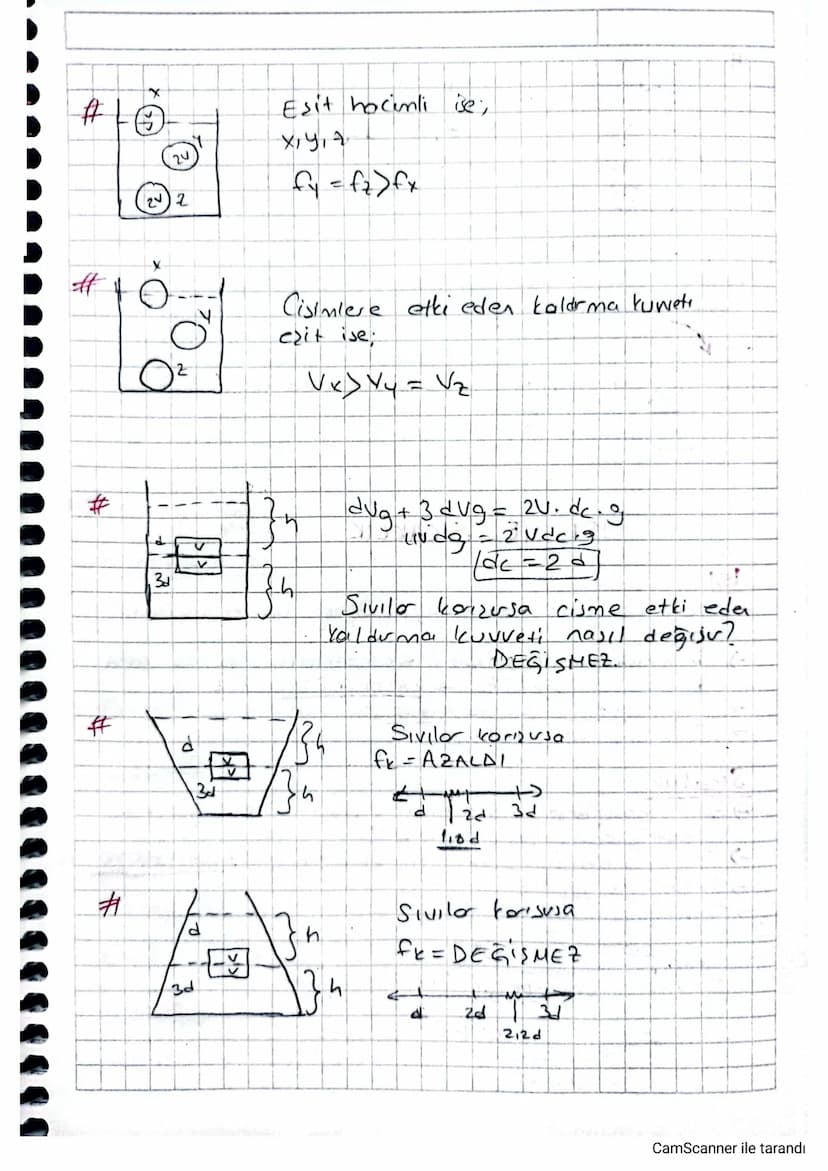 #
x
V
V
y
2V
2V
z
Eşit hacimli ise;
x, y, z
fy = fz > fx
#
x
y
z
Cisimlere etki eden kaldırma kuvveti
eşit ise;
Vx > Vy = Vz
#
d
V
V
3d
h
h
dVg + 3dVg = 2V. dc. g
4Vdg = 2Vdc.g
dc = 2d
Sıvılar karışırsa cisme etki eden
kaldırma kuvveti nasıl değişir?
DEĞİŞMEZ.
#
d
V
V
3d
h
h
Sıvılar karışırsa
fk = AZALDI
d 2d 3d
1,8d
#
d
V
V
3d
h
h
Sıvılar karışırsa
fk = DEĞİŞMEZ
d 2d 3d
2,2d
CamScanner ile tarandı